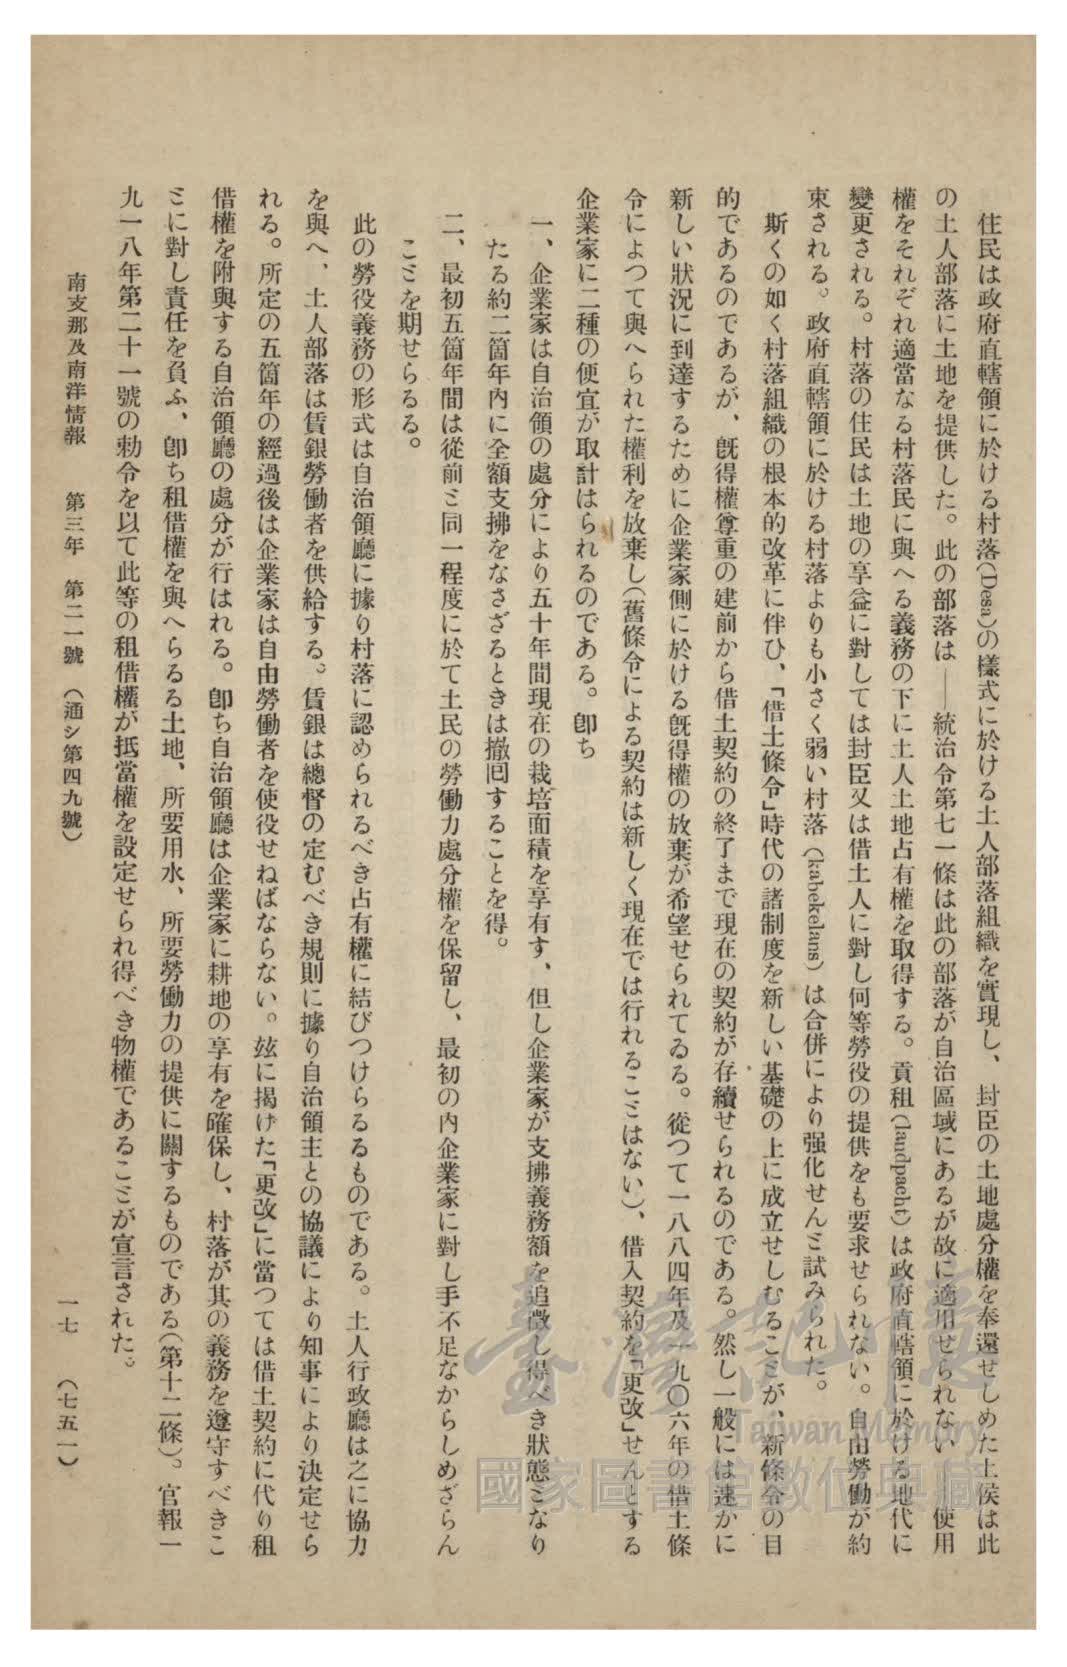 住民は政府直轄領に於ける村落(Desa)の樣式に於ける土人部落組織を實現し、封臣の土地處分權を奉還せしめた土侯は此
の土人部落に土地を提供した。此の部落は――統治令第七一條は此の部落が自治區域にあるが故に適用せられない――使用
權をそれぞれ適當なる村落民に與へる義務の下に土人土地占有權を取得する。貢租(landpacht)は政府直轄領に於ける地代に
變更される。村落の住民は土地の享益に對しては封臣又は借土人に對し何等勞役の提供をも要求せられない。自由勞働が約
束される。政府直轄領に於ける村落よりも小さく弱い村落(kabekelans)は合併により强化せんヿ試みられた。
斯くの如く村落組織の根本的改革に伴ひ、「借土條令」時代の諸制度を新しい基礎の上に成立せしむるこヿが、新條令の目
的であるのであるが、旣得權尊重の建前から借土契約の終了まで現在の契約が存續せられるのである。然し一般には速かに
新しい狀況に到達するために企業家側に於ける旣得權の放棄が希望せられてゐる。從つて一八八四年及一九〇六年の借土條
令によつて與へられた權利を放棄し(舊條令による契約は新しく現在では行れるこヿはない)、借入契約を「更改」せんとする
企業家に二種の便宜が取計はられるのである。卽ち
一、企業家は自治領の處分により五十年間現在の栽培面積を享有す、但し企業家が支拂義務額を追徵し得べき狀態ヿなり
たる約二箇年內に全額支拂をなさざるときは撤囘することを得。
二、最初五箇年間は從前ヿ同一程度に於て土民の勞働力處分權を保留し、最初の內企業家に對し手不足なからしめざらん
こヿを期せらるる。
此の勞役義務の形式は自治領廳に據り村落に認められるべき占有權に結びつけらるるものである。土人行政廳は之に協力
を與へ、土人部落は賃銀勞働者を供給する。賃銀は總督の定むべき規則に據り自治領主との協議により知事により決定せら
れる。所定の五箇年の經過後は企業家は自由勞働者を使役せねばならない。玆に揭げた「更改」に當つては借土契約に代り租
借權を附與する自治領廳の處分が行はれる。卽ち自治領廳は企業家に耕地の享有を確保し、村落が其の義務を遵守すべきこ
ヿに對し責任を負ふ、卽ち租借權を與へらるる土地、所要用水、所要勞働力の提供に關するものである(第十二條)。官報一
九一八年第二十一號の勅令を以て此等の租借權が抵當權を設定せられ得べき物權であるこヿが宣言された。
南支那及南洋情報　第三年　第二一號　(通シ第四九號)　一七　(七五一)
臺灣記憶
Taiwan Memory
國家圖書館數位典藏